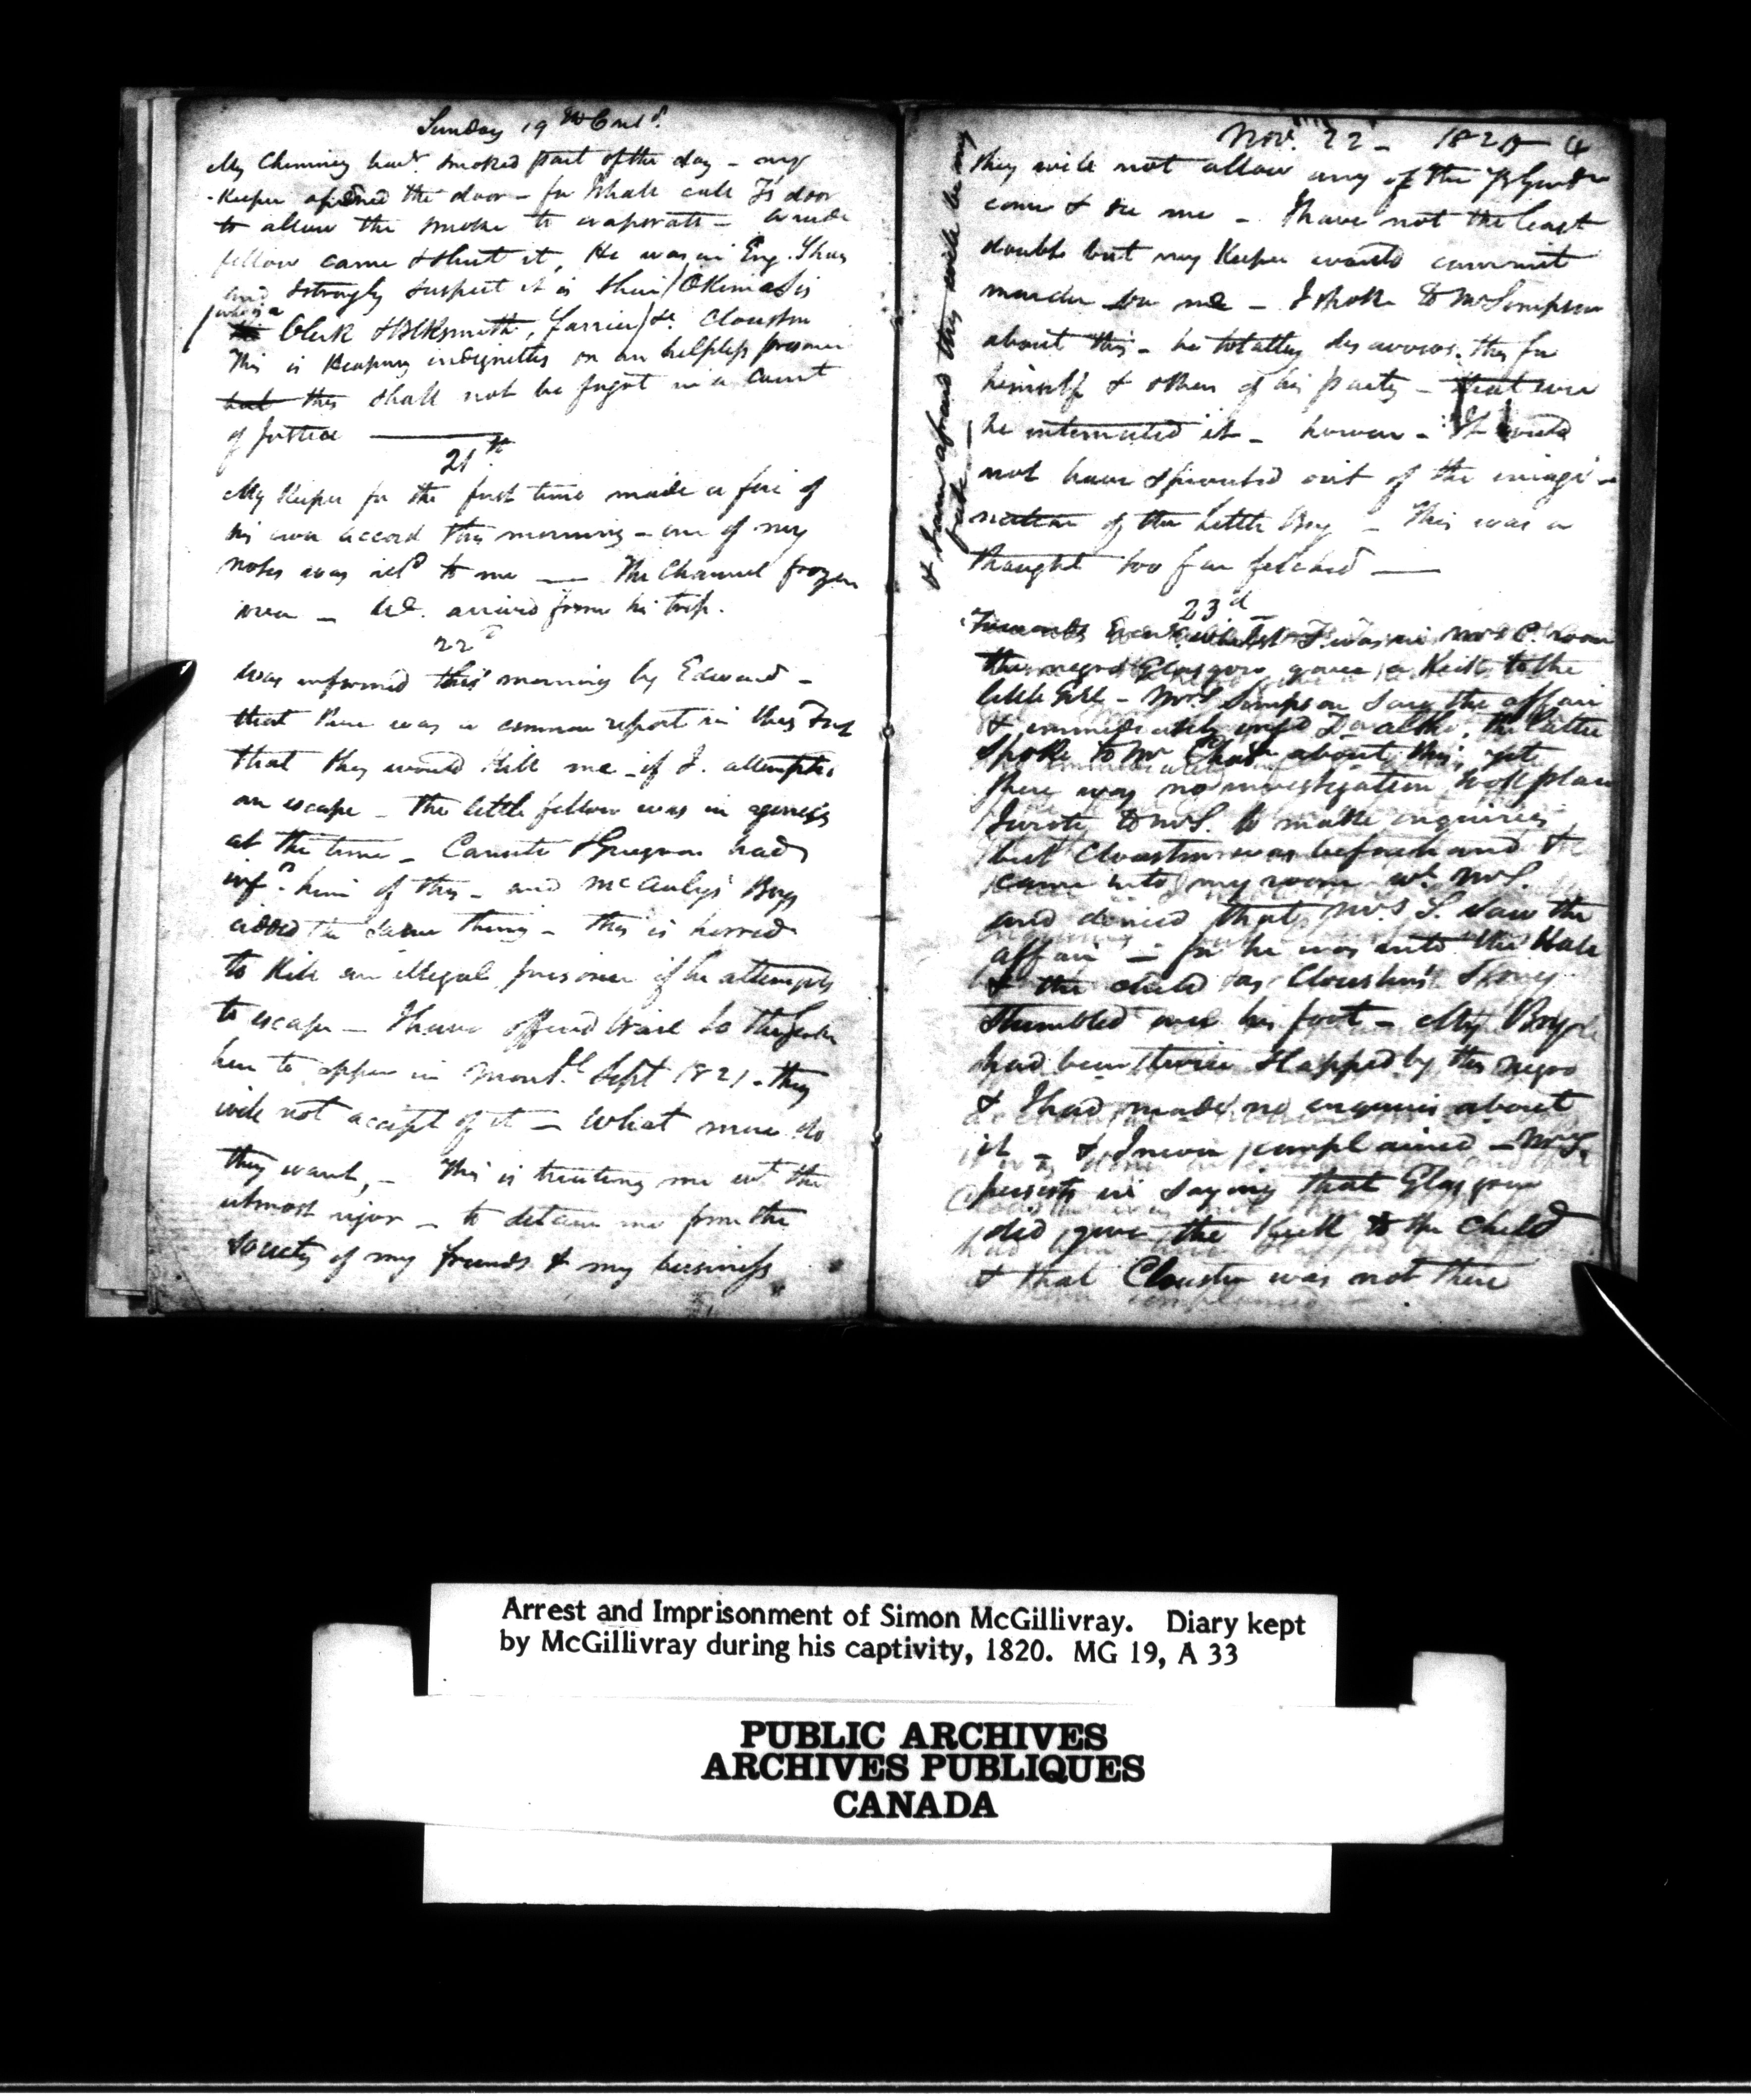 Sunday 19th Contd.
My Chimney havg. smoked part of the day – my
Keeper opened the door – for I shall call It door
to allow the smoke to evaporate – a rude
fellow came & shut it, He was in Eng. Shoes
and strongly suspect it is their / Okimasis
who is a
Clerk & Blksmith, farrier / &c. Clouston
This is heaping indignities on an helpless prisoner
but this shall not be forgot in a Court
of Justice ———
21st.
My Keeper for the first time made a fire of
his own accord this morning – one of my
notes was retd to me — The Channel frozen
over – arrived from his trip.
22d
Was informed this morning by Edward –
that there was a common report in this Fort
that they would Kill me – if I attempts
an escape – the little fellow was in agonies
at the time – & Grignon had
infd. him of this – and McAuly's Boys
added the same thing – this is horrid
to Kill an illegal prisoner if he attempts
to escape – I have offered Bail to
him to appear in Montl. Sept 1821 – they
will not accept of it – What more do
they want, – This is treating me wt. the
utmost rigor – to detain me from the
Society of my friends & my business
Nov. 22 – 1820 – 4
they will not allow any of the
come & see me – I have not the least
doubt but my Keeper would commit
murder on me – I spoke to Mr Simpson
about this – he totally disavows this for
himself & others of his party – that ever
he intended it – however – It could
not have sprouted out of the imagi-
nation of the little Boy – This was a
thought too far fetched ——
& I am afraid this will be my
fate —
23d
Towards Eveng. whilst I was in Mrs P. room
the negro Glasgow gave a Kick to the
little Girl – Mrs. Simpson saw the affair
& immediately the latter
spoke to Mr about this, yet
there was no investigation took place
I wrote to Mr S. to make enquiries,
but Clouston was beforehand &
came into my room wt. Mr S.
and denied that Mrs S. saw the
affair – for he was into the Hall
& the child as Clouston's Story
stumbled over his foot – My Boy
had been twice slapped by this negro
& I had made no enquiries about
it – & I never complained – Mrs S.
persists in saying that Glasgow
did give the Kick to the Child
& that Clouston was not there
Arrest and Imprisonment of Simon McGillivray. Diary kept
by McGillivray during his captivity, 1820. MG 19, A 33
PUBLIC ARCHIVES
ARCHIVES PUBLIQUES
CANADA